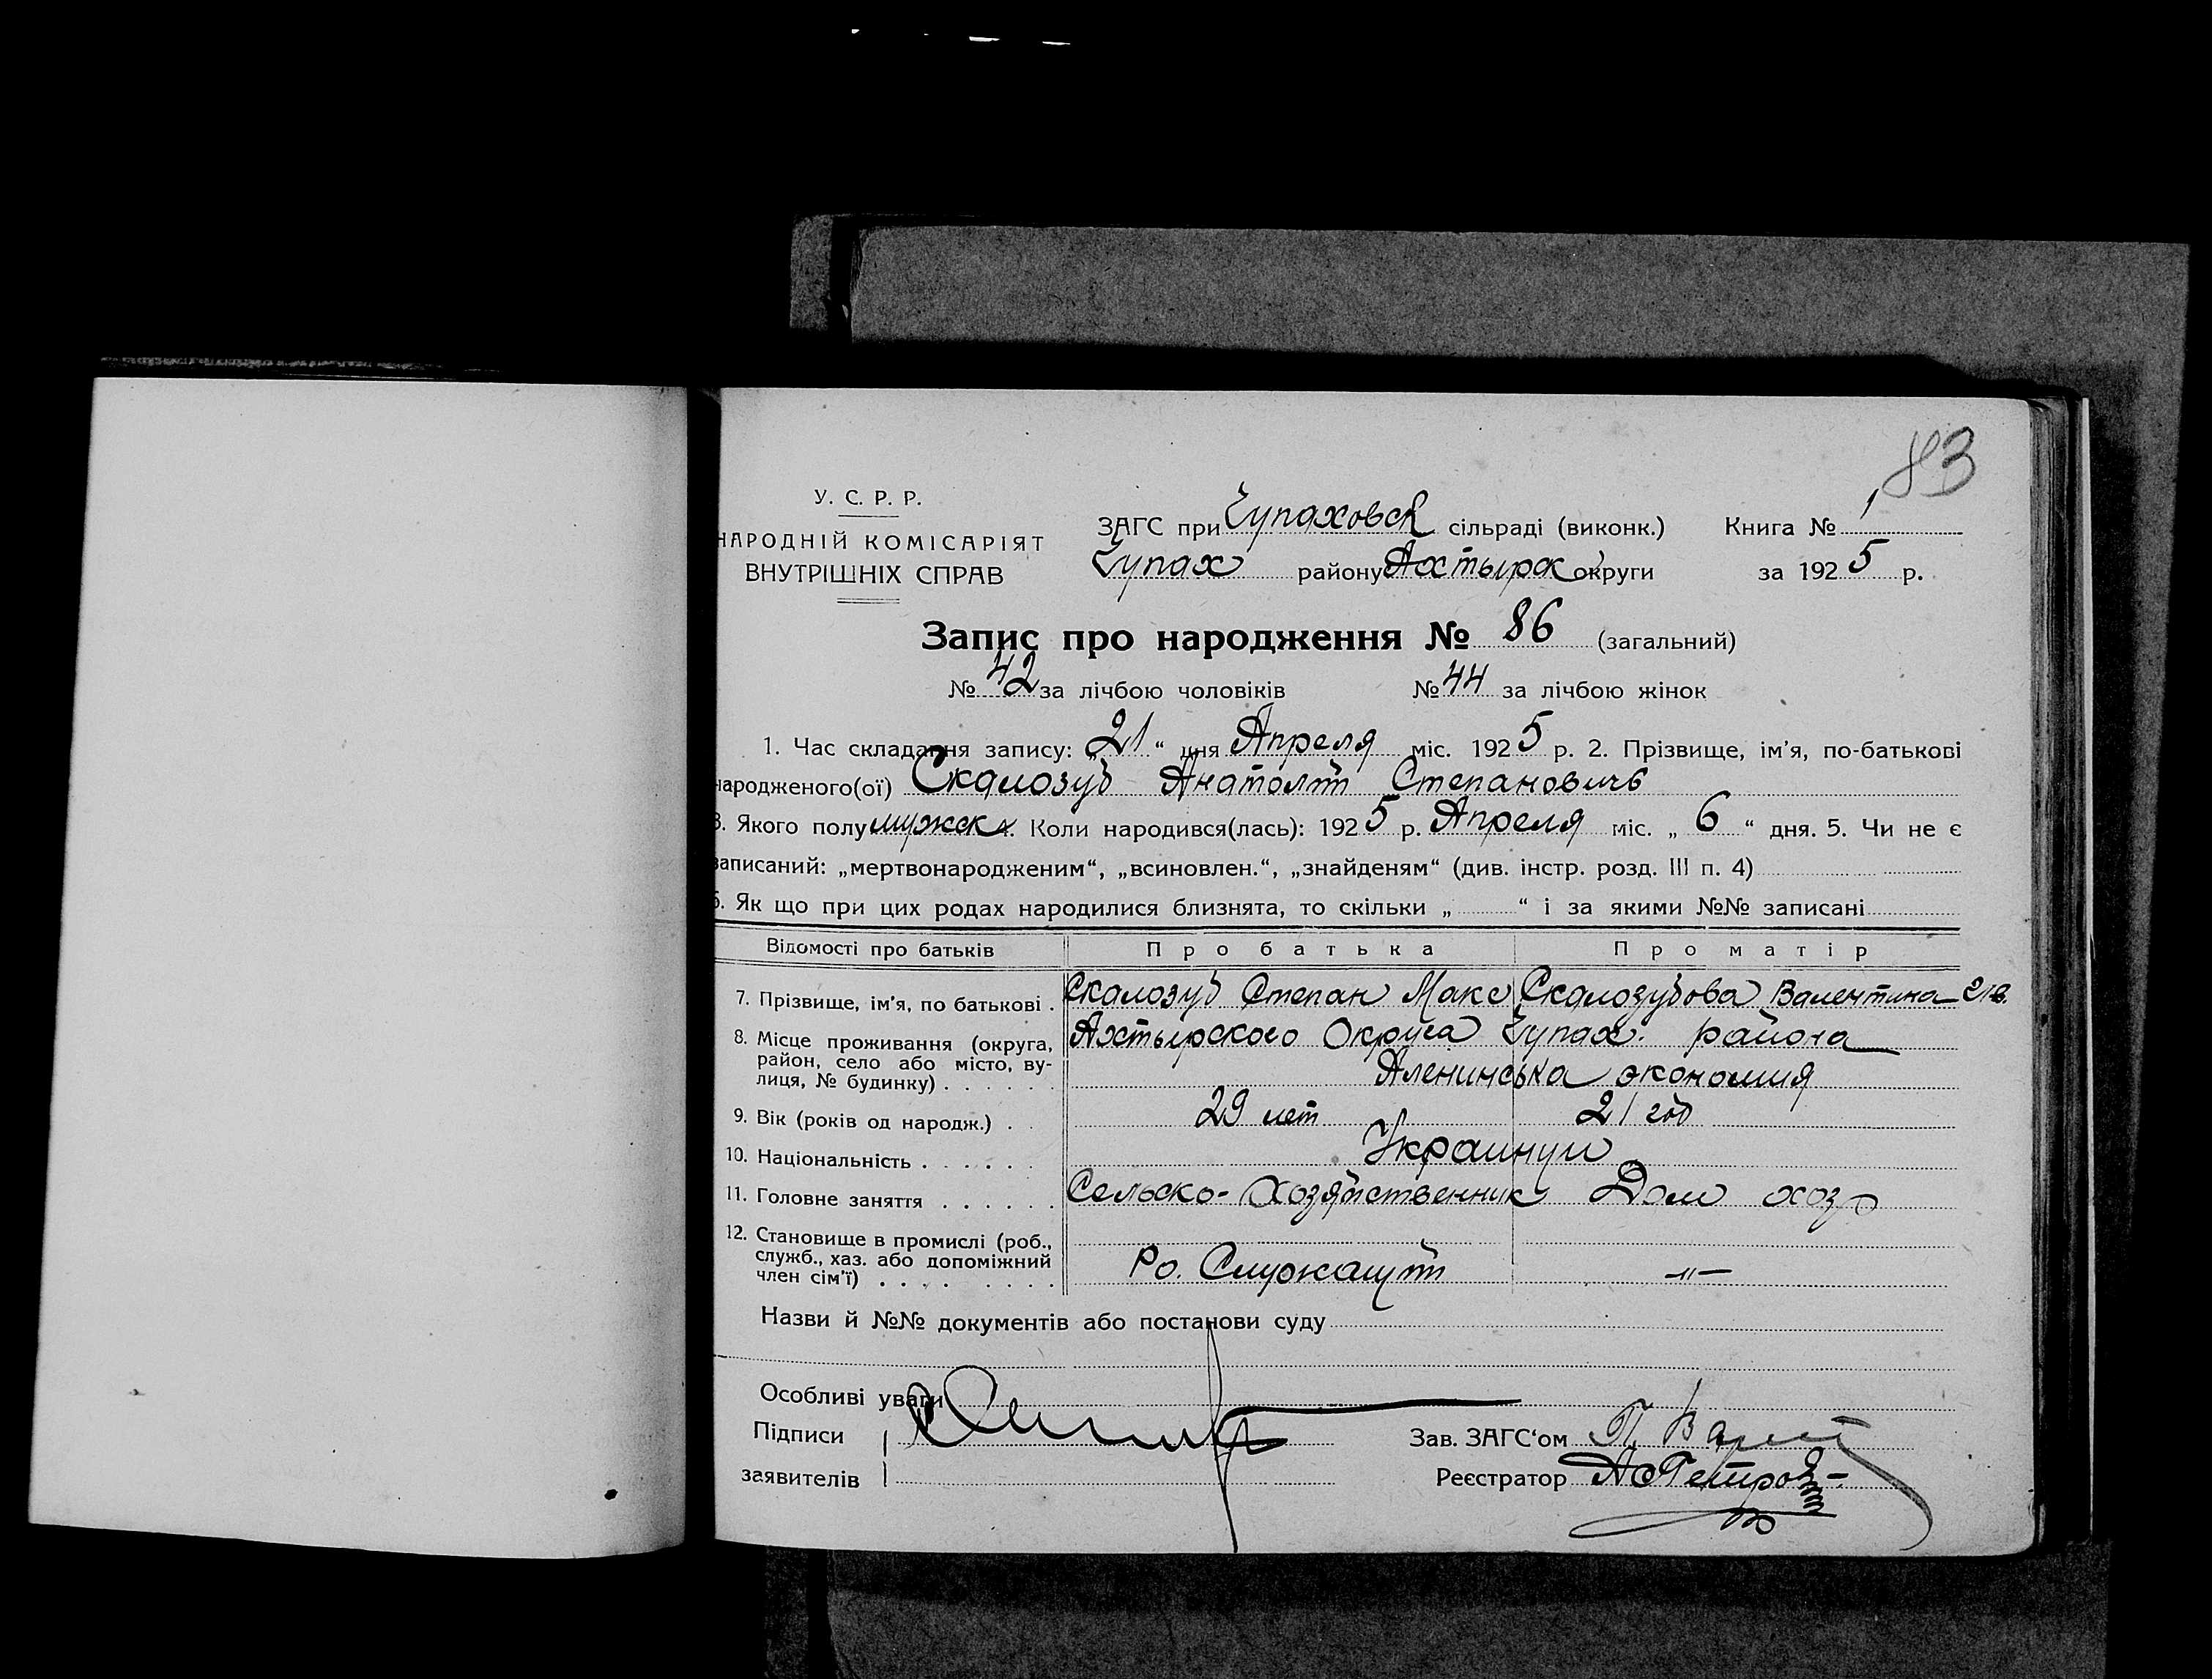 83
У. С. Р. Р.
НАРОДНІЙ КОМІСАРІЯТ
ВНУТРІШНІХ СПРАВ
ЗАГС при Чупаховск сільраді (виконк.) Книга № 1
Чупах району Ахтырск округи за 1925 р.
Запис про народження № 86 (загальний)
№ 42 за лічбою чоловіків № 44 за лічбою жінок
1. Час складання запису: „21“ дня Апреля міс. 1925 р. 2. Прізвище, ім'я, по-батькові
народженого(ої) Скалозуб Анатолий Степановичь
3. Якого полу мужск 4. Коли народився(лась): 1925 р. Апреля міс. „6“ дня. 5. Чи не є
записаний: „мертвонародженим“, „всиновлен.“, „знайденям“ (див. інстр. розд. III п. 4)
6. Як що при цих родах народилися близнята, то скільки „ “ і за якими №№ записані
Відомості про батьків Про батька Про матір
7. Прізвище, ім'я, по батькові . Скалозуб Степан Макс Скалозубова Валентина
8. Місце проживання (округа, район, село або місто, вулиця, № будинку) Ахтырского Округа Чупах. района
Аленинська экономия
9. Вік (років од народж.) . . 29 лет 21 год
10. Національність . . . . . . Украинци
11. Головне заняття . . . . . . Сельско-Хозяйственник Дом хоз
12. Становище в промислі (роб., служб., хаз. або допоміжний член сім'ї) . . . . Служащий -"-
Назви й №№ документів або постанови суду
Особливі уваги
Підписи
заявителів
Зав. ЗАГС'ом П.
Реєстратор А Петров